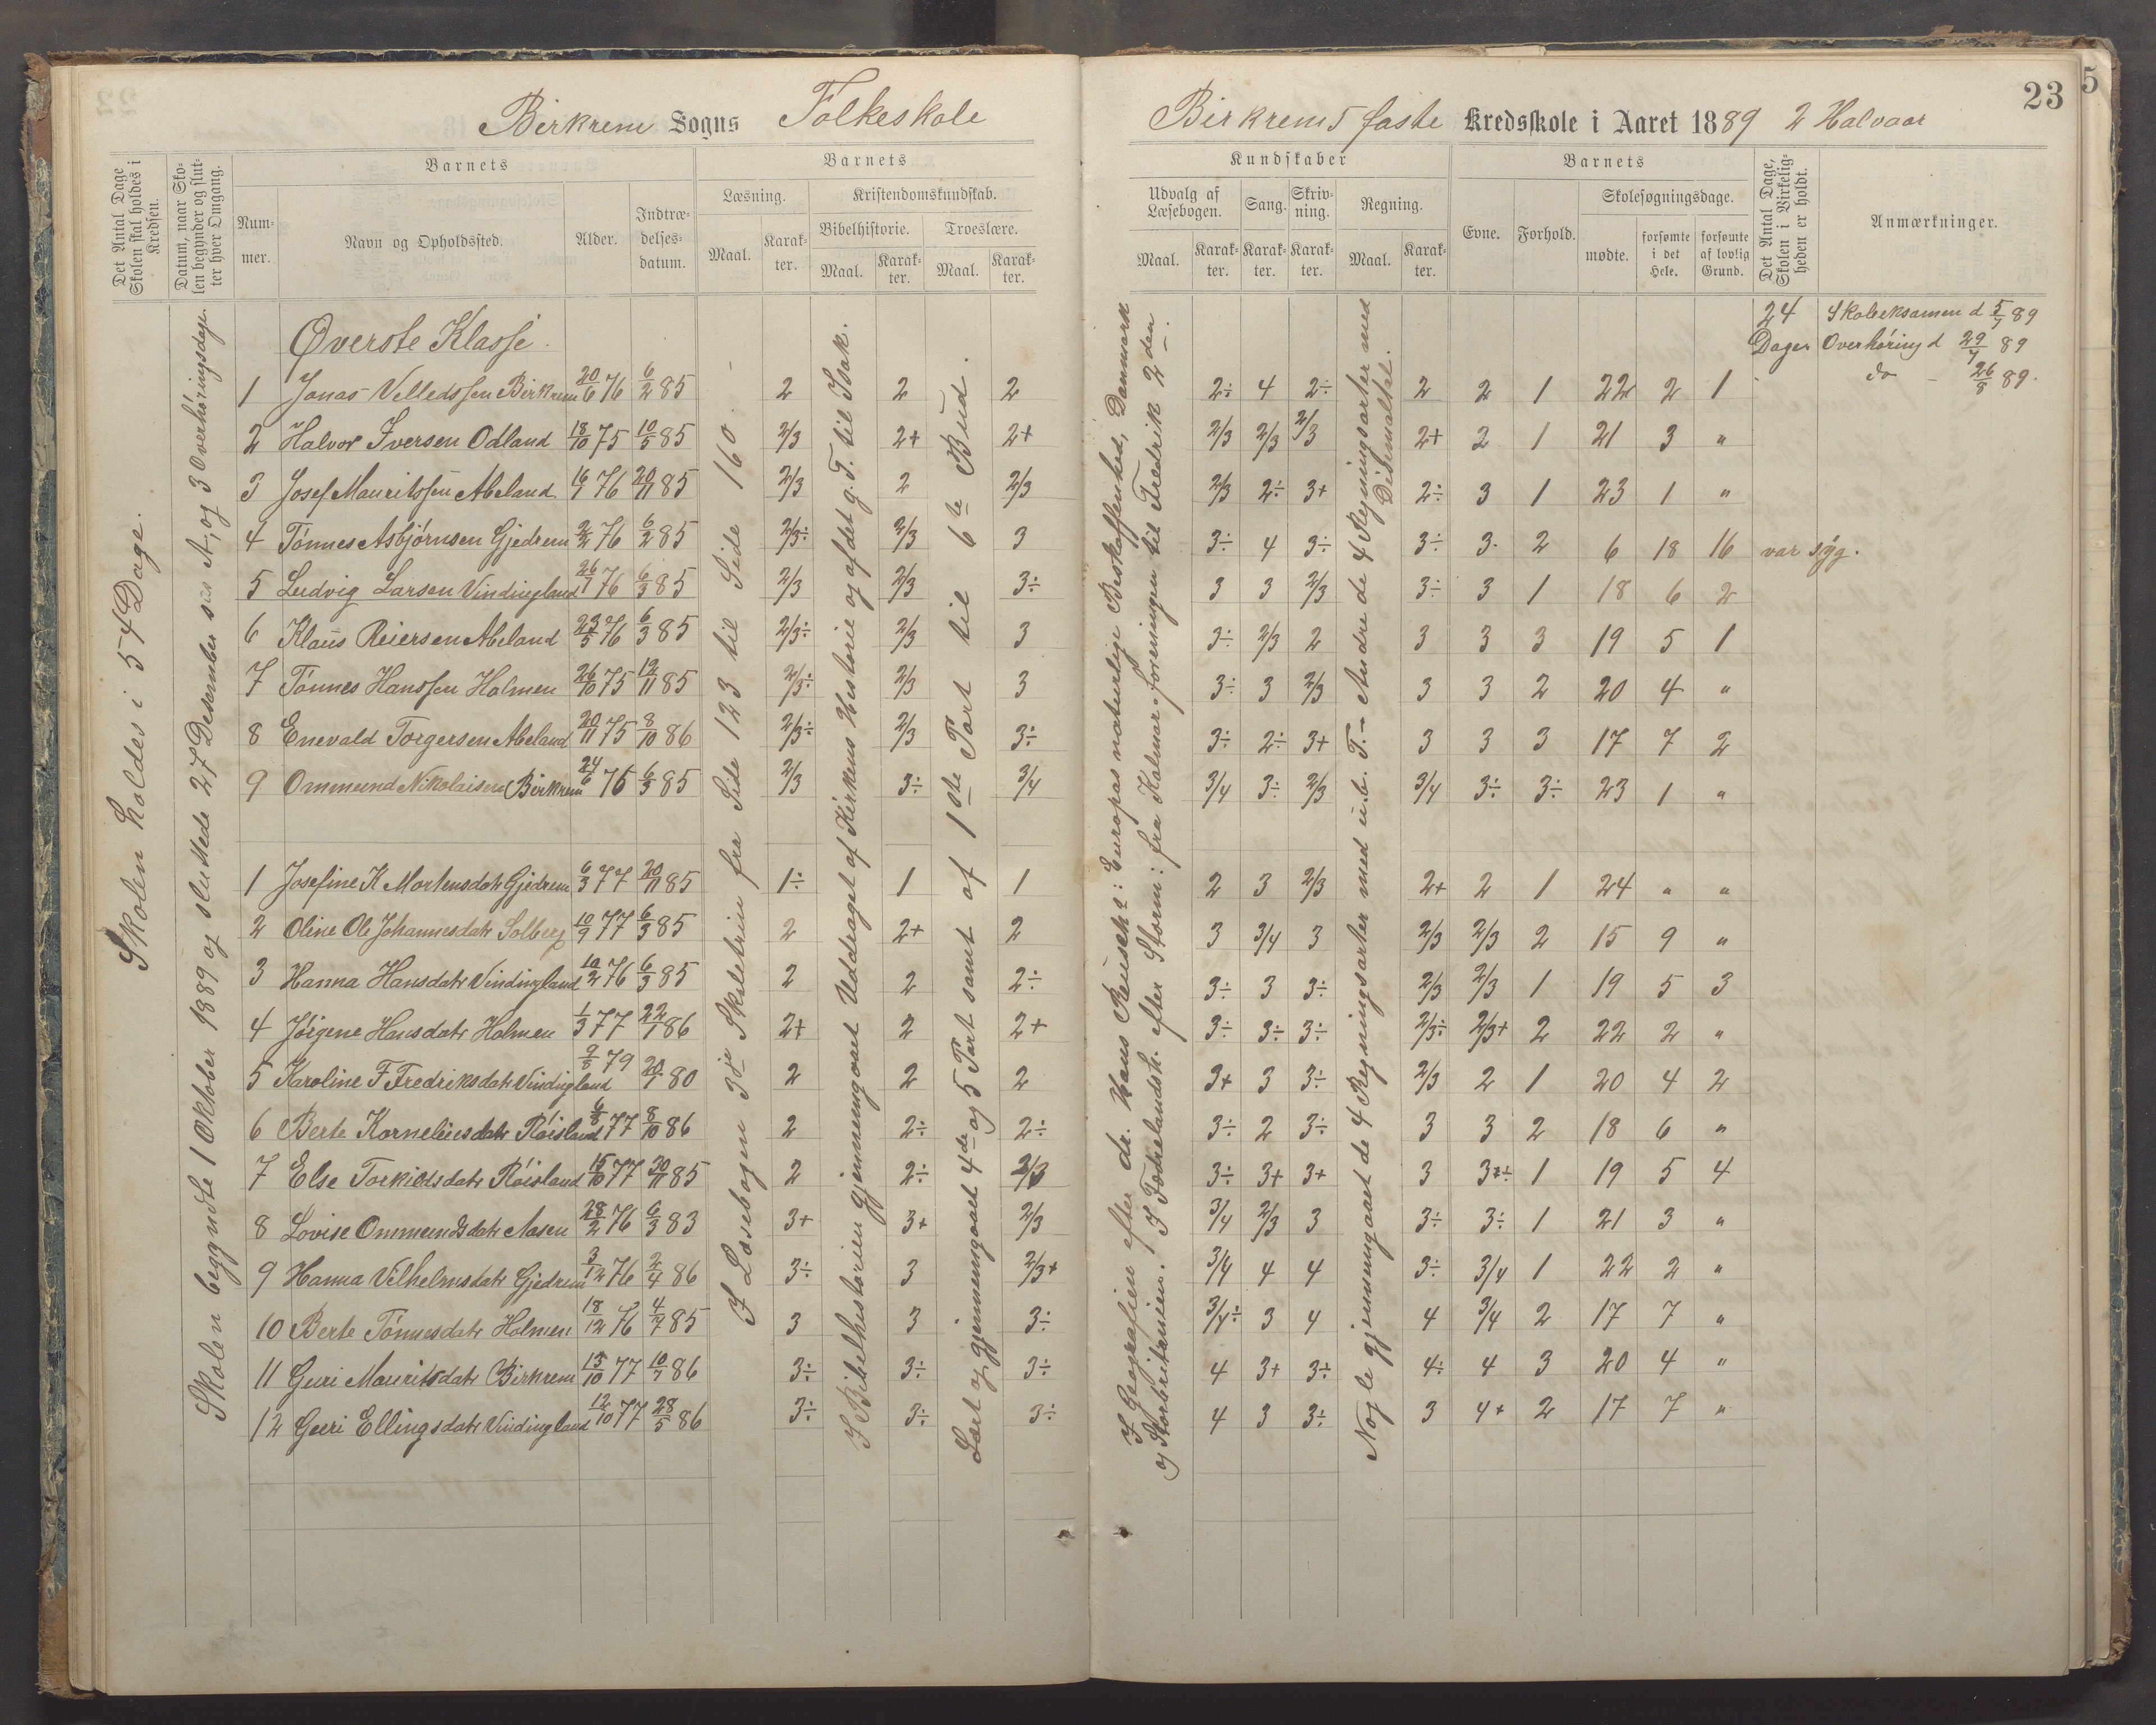 Birkrem Sogns Folkeskole
Det Antal Dage Skolen skal holdes i Kredsen.
Datum, naar Skolen begynder og slutter hver Omgang.
Barnets
Nummer.
Navn og Opholdssted.
Alder.
Indtrædelsesdatum.
Barnets
Læsning.
Maal.
Karakter.
Kristendomskundskab.
Bibelhistorie.
Maal.
Karakter.
Troeslære.
Maal.
Karakter.
Skolen holdes i 54 Dage.
Skolen begyndte 1 Oktober 1889 og sluttede 27 Desember s. A., og 3 Overhøringsdage.
I Læsebogen 3die Skoletrin fra Side 123 til Side 160.
I Bibelhistorien gjennemgaaet Uddraget af Kirkens Historie og af det g. T. til Isak.
Læst og gjennemgaaet 4de og 5 Part samt af 1ste Part til 6te Bud.
Øverste Klasse.
1 Jonas Velledssen Birkrem 20/6 76 6/2 85 2 2 2
2 Halvor Iversen Odland 18/10 75 10/5 85 2/3 2+ 2+
3 Josef Mauritssen Abeland 16/1 76 20/11 85 2/3 2 2/3
4 Tønnes Asbjørnsen Gjedrem 2/2 76 6/2 85 2/3÷ 2/3 3
5 Ludvig Larsen Vindingland 26/1 76 6/3 85 2/3 2/3 3÷
6 Klaus Reiersen Abeland 23/5 76 6/3 85 2/3÷ 2/3 3
7 Tønnes Hanssen Holmen 26/10 75 12/11 85 2/3÷ 2/3 3
8 Enevald Torgersen Abeland 20/11 75 8/10 86 2/3÷ 2/3 3÷
9 Ommund Nikolaisen Birkrem 24/6 75 6/3 85 2/3 3÷ 3/4
1 Josefine K Mortensdatr Gjedrem 6/3 77 20/11 85 1÷ 1 1
2 Oline Ole Johannesdatr Solberg 10/9 77 6/3 85 2 2+ 2
3 Hanna Hansdatr Vindingland 10/2 76 6/3 85 2 2 2÷
4 Jørgene Hansdatr Holmen 1/3 77 22/1 86 2+ 2 2+
5 Karoline F Fredriksdatr Vindingland 9/8 79 20/1 80 2 2 2
6 Berte Korneliusdatr Røisland 6/8 77 8/10 86 2 2÷ 2÷
7 Else Torkildsdatr Røisland 15/10 77 30/11 85 2 2÷ 2/3
8 Lovise Ommundsdatr Aasen 28/2 76 6/3 83 3+ 3+ 2/3
9 Hanna Vilhelmsdatr Gjedrem 3/12 76 2/4 86 3÷ 3 2/3+
10 Berte Tønnesdatr Holmen 18/12 76 4/7 85 3 3 3÷
11 Guri Mauritsdatr Birkrem 13/10 77 10/7 86 3÷ 3÷ 3÷
12 Guri Ellingsdatr Vindingland 12/10 77 28/5 86 3÷ 3÷ 3÷
23
5
Birkrems faste Kredsskole i Aaret 1889 2 Halvaar
Kundskaber
Udvalg af Læsebogen.
Maal.
Karakter.
Sang.
Karakter.
Skrivning.
Karakter.
Regning.
Maal.
Karakter.
Barnets
Evne.
Forhold.
Skolesøgningsdage.
mødte.
forsømte i det Hele.
forsømte af lovlig Grund.
Det Antal Dage, Skolen i Virkeligheden er holdt.
Anmærkninger.
I Geografien efter dr. Hans Reusch: Europas naturlige Beskaffenhed, Danmark
og Storbritanien. I Fædrelandsh. efter Storm: fra Kalmarforeningen til Fredrik 2den.
Nogle gjennemgaaet de 4 Regningsarter med u.b. T.- Andre de 4 Regningsarter med
Desimaltal.
24 Dager
Skoleeksamen d 5/7 89
Overhøring d 29/7 89
do - 26/8 89.
2÷ 4 2÷ 2 2 1 22 2 1
2/3 2/3 2/3 2+ 2 1 21 3 "
2/3 2÷ 3+ 2÷ 3 1 23 1 "
3÷ 4 3÷ 3÷ 3 2 6 18 16 var syg.
3 3 2/3 3÷ 3 1 18 6 2
3÷ 2/3 2 3 3 3 19 5 1
3÷ 3 2/3 3 3 2 20 4 "
3÷ 2÷ 3+ 3 3 3 17 7 2
3/4 3÷ 2/3 3/4 3÷ 3÷ 23 1 "
2 3 2/3 2+ 2 1 24 " "
3 3/4 3 2/3 2/3 2 15 9 "
3÷ 3 3÷ 2/3 2/3 1 19 5 3
3÷ 3÷ 3÷ 2/3÷ 2/3+ 2 22 2 "
3+ 3 3÷ 2/3 2 1 20 4 2
3÷ 2 3÷ 3 3 2 18 6 "
3÷ 3+ 3+ 3 3÷ 1 19 5 4
3/4 2/3 3 3÷ 3÷ 1 21 3 "
3/4 4 4 3÷ 3/4 1 22 2 "
3/4÷ 3 4 4 3/4 2 17 7 "
4 3+ 3÷ 4÷ 4 3 20 4 "
4 3 3÷ 3 4+ 2 17 7 "